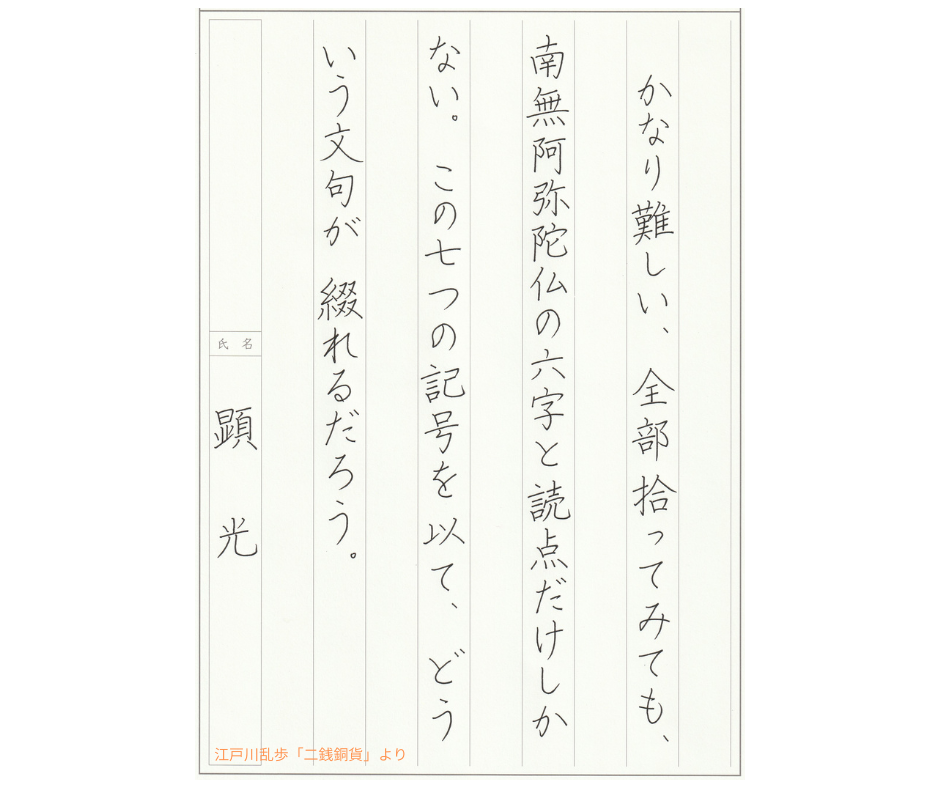 かなり難しい、全部拾ってみても、
南無阿弥陀仏の六字と読点だけしか
ない。この七つの記号を以て、どう
いう文句が綴れるだろう。
氏名
顕光
江戸川乱歩「二銭銅貨」より